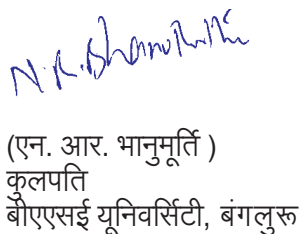 N.R.Bhanumurthi
(एन. आर. भानुमूर्ति )
कुलपति
बीएएसई यूनिवर्सिटी, बंगलुरू